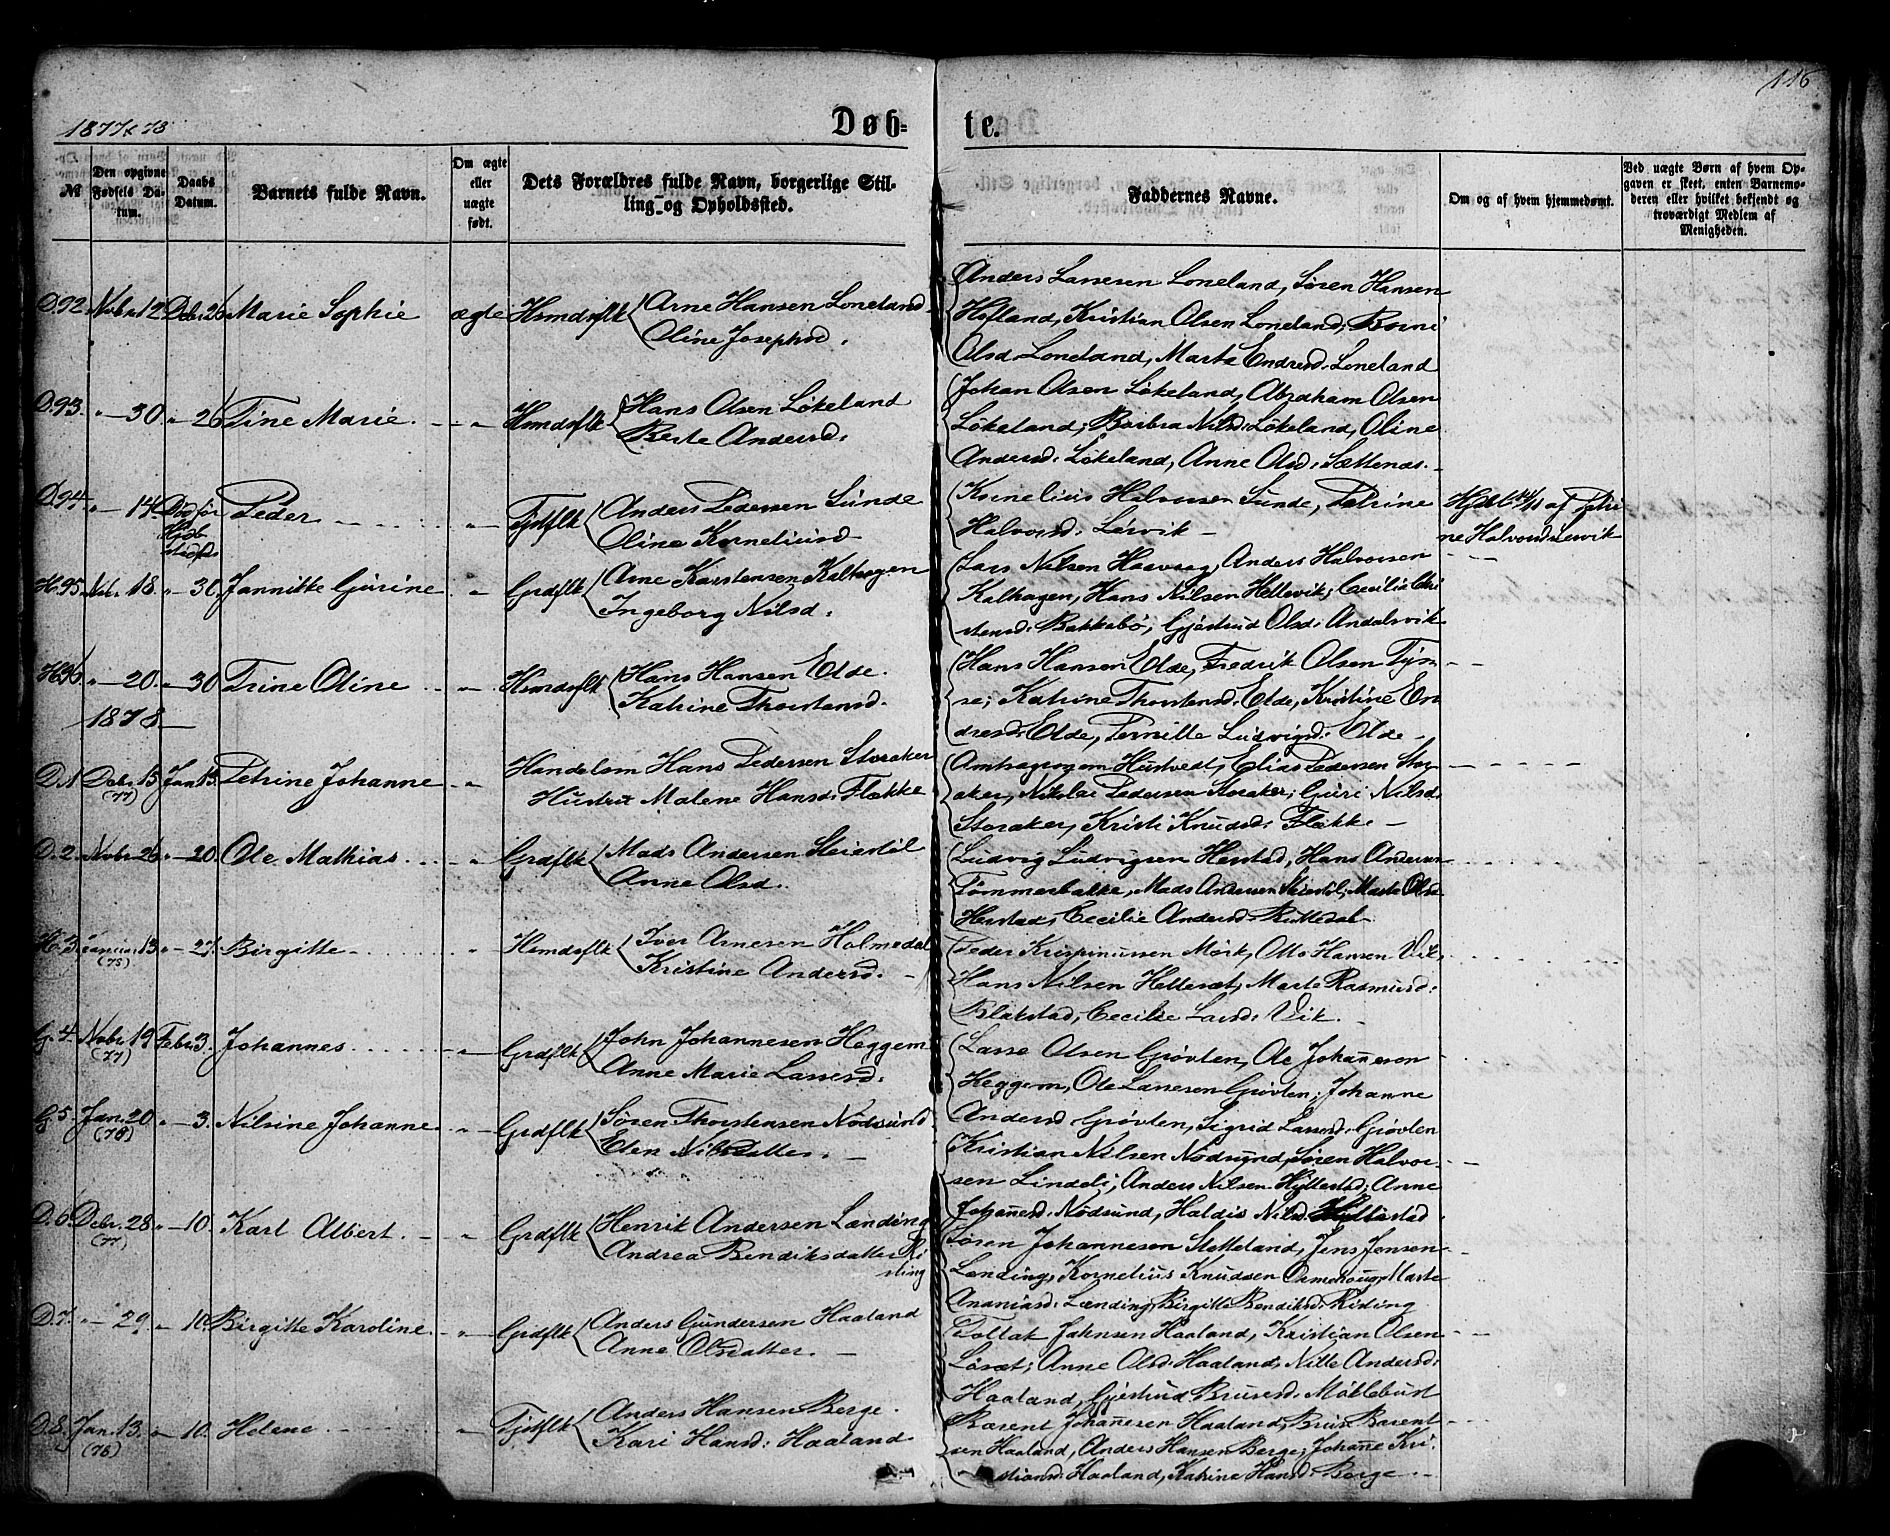 116
1877 & 78
Døb=
te.
№
Den opgivne Fødsels Datum.
Daabs Datum.
Barnets fulde Navn.
Om ægte eller uægte født.
Dets Forældres fulde Navn, borgerlige Stilling og Opholdssted.
Faddernes Navne.
Om og af hvem hjemmedøbt.
Ved uægte Børn af hvem Opgaven er skeet, enten Barnemoderen eller hvilket bekjendt og troværdigt Medlem af Menigheden.
D.92. Novbr 12 Debr. 26 Marie Sophie ægte Hsmdsflk Arne Hansen Loneland
Oline Josephsd.
Anders Lassesen Loneland, Søren Hansen
Hofland, Kristian Olsen Loneland;
Olsd. Loneland, Marta Endresd. Loneland
D.93. " — 30. " — 26 Tine Marie. — " Hsmdsflk Hans Olsen Løkeland
Berte Andersd.
Johan Olsen Løkeland, Abraham Olsen
Løkeland; Barbra Nilsd. Løkeland, Oline
Andersd. Løkeland, Anne Olsd. Sættenes.
D.94. " — 14. Død før Peder — " Tjstflk Anders Pedersen Sunde
Oline Korneliusd.
Kornelius Halvorsen Sunde, Petrine
Halvorsd. Lervik
Hjdbt af Petri
ne Halvorsd. Lervik
H.95. Nvbr. 18. " — 30. Jannikke Gurine " Grdflk Arne Karstensen Kalhagen
Ingeborg Nilsd.
Lars Nilsen Haavaag, Anders Halvorsen
Kalhagen, Hans Nilsen Hellevik; Cecilia Chri
stensd. Bakkebø, Gjertrud Olsd. Andalsvik
H.96 " — 20. " — 30 Trine Oline — " Hsmdsflk Hans Hansen Elde.
Katrine Thorstensd.
Hans Hansen Elde, Fredrik Olsen Tys
se; Katrine Thorstensd. Elde, Kristine En
dresd. Elde, Pernille Ludvigsd. Elde
1878
D.1 Debr. 15 (77) Jan. 13. Petrine Johanne " Handelsm Hans Pedersen Storaker
Hustru Malene Hansd. Flække
Hustvedt, Elias Pedersen Stor
aker, Nikolai Pedersen Storaker; Guri Nilsd.
Storaker, Kristi Knudsd. Flække
D.2. Novbr. 26 " — 20. Ole Mathias " Grdflk Mads Andersen Steiestøl
Anne Olsd.
Ludvig Ludvigsen Herstad, Hans Andersen
Tømmerbakke, Mads Andersen Steiestøl; Marta Olsd.
Herstad, Cecilie Andersd. Ruttedal
H.3. Januar 13. (78) " — 27. Birgitte " Hsmdsflk Iver Arnesen Holmedal
Kristine Andersd.
Peder Krispinussen Mørk, Otto Hansen Vik,
Hans Nilsen Hellesæt; Marte Rasmusd.
Blakstad, Cecilie Larsd. Vik.
G.4. Nvbr. 19 (77) Febr. 3. Johannes " Grdflk John Johannesen Heggem
Anne Marie Lassesd.
Lasse Olsen Grøvlen, Ole Johanesen
Heggem, Ole Lassesen Grøvlen; Johanne
Andersd. Grøvlen, Sigrid Lassesd. Grøvlen
G.5. Jan. 20 (78) " — 3. Nilsine Johanne " Grdflk Søren Thorstensen Nødsund
Elen Nilsdatter.
Kristian Nilsen Nødsund, Søren Halvor
sen Lindeli, Anders Nilsen Hyllestad; Anne
Johanesd. Nødsund, Haldis Nilsd. Hyllestad
D.6. Debr. 28 (77) " — 10. Karl Albert. " Grdflk Henrik Andersen Lænding
Andrea Bendiksdatter Ri
sting
Søren Johannesen Stetteland, Jens Jensen
Lænding, Kornelius Knudsen, Marte
Ananiasd. Lænding, Birgitte Bendiksd. Risting
D.7. " — 29 " — 10. Birgitte Karoline " Grdflk Anders Gundersen Haaland
Anne Olsdatter.
Tollak Johnsen Haaland, Kristian Olsen
Løsæt; Anne Olsd. Haaland, Nille Andersd.
Haaland, Gjertrud Brusesd. Møklebust
D.8. Jan. 13. (78) " — 10. Helene " Tjstflk Anders Hansen Berge.
Kari Hansd. Haaland
Barent Johanesen Haaland, Bruse Barent
sen Haaland, Anders Hansen Berge; Johane Kri
stiansd. Haaland, Katrine Hansd. Berge